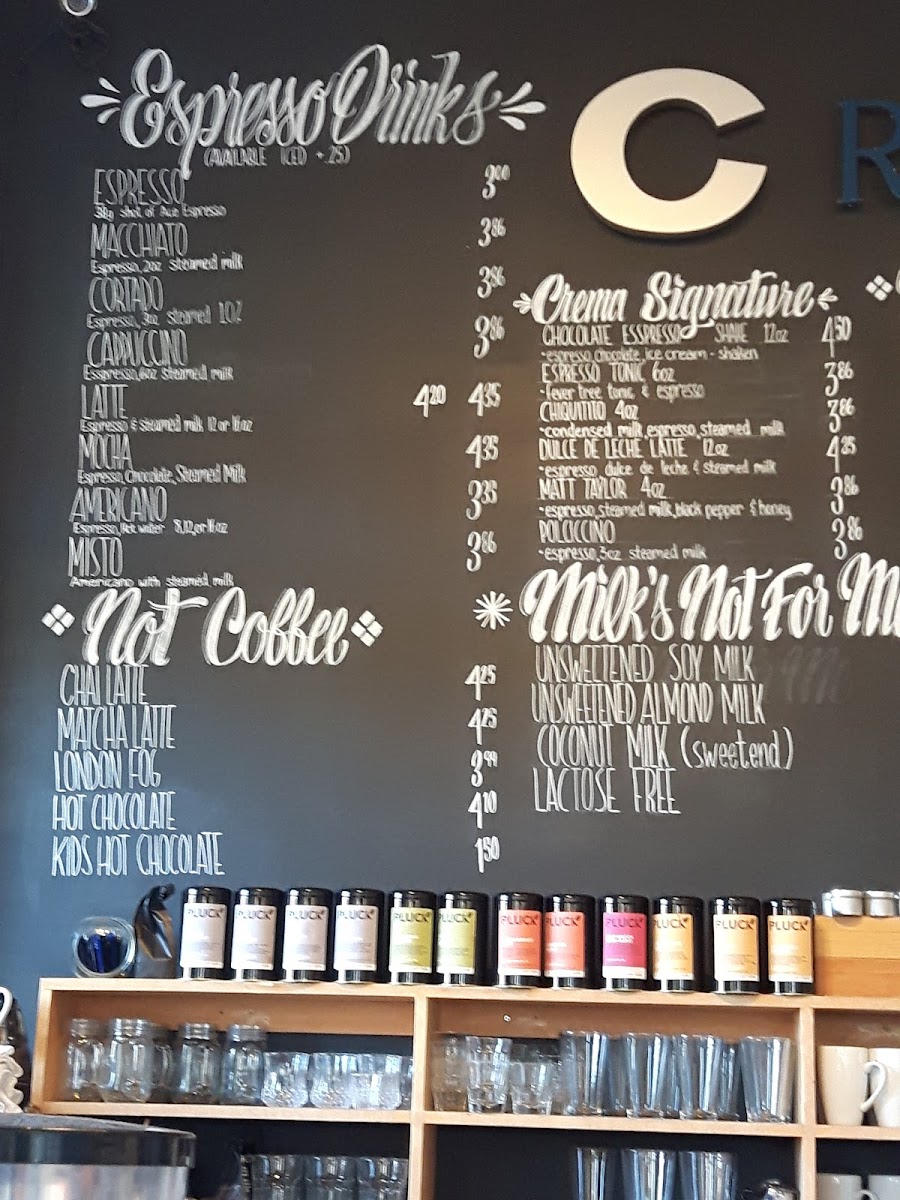 Espresso Drinks
(AVAILABLE ICED +.25)
ESPRESSO 3.00
38g shot of Ace Espresso
MACCHIATO 3.86
Espresso, 2oz steamed milk
CORTADO 3.86
Espresso, 3oz steamed 10%
CAPPUCCINO 3.86
Esspresso, 6oz steamed milk
LATTE 4.20 4.35
Espresso & steamed milk 12 or 16oz
MOCHA 4.35
Espresso, Chocolate, Steamed Milk
AMERICANO 3.35
Espresso, Hot water 8, 12, or 16oz
MISTO 3.86
Americano with steamed milk
Not Coffee
CHAI LATTE 4.25
MATCHA LATTE 4.25
LONDON FOG 3.99
HOT CHOCOLATE 4.10
KIDS HOT CHOCOLATE 1.50
C R
Crema Signature
CHOCOLATE ESSPRESSO SHAKE 12oz 4.50
-espresso, chocolate, ice cream - shaken
ESPRESSO TONIC 6oz 3.86
-fever tree tonic & espresso
CHIQUITITO 4oz 3.86
-condensed milk, espresso, steamed milk
DULCE DE LECHE LATTE 12oz 4.25
-espresso, dulce de leche & steamed milk
MATT TAYLOR 4oz 3.86
-espresso, steamed milk, black pepper & honey
POLCICCINO 3.86
-espresso, 3oz steamed milk
Milk's Not For M
UNSWEETENED SOY MILK
UNSWEETENED ALMOND MILK
COCONUT MILK (sweetend)
LACTOSE FREE
PLUCK PLUCK PLUCK PLUCK PLUCK PLUCK PLUCK PLUCK PLUCK PLUCK PLUCK PLUCK